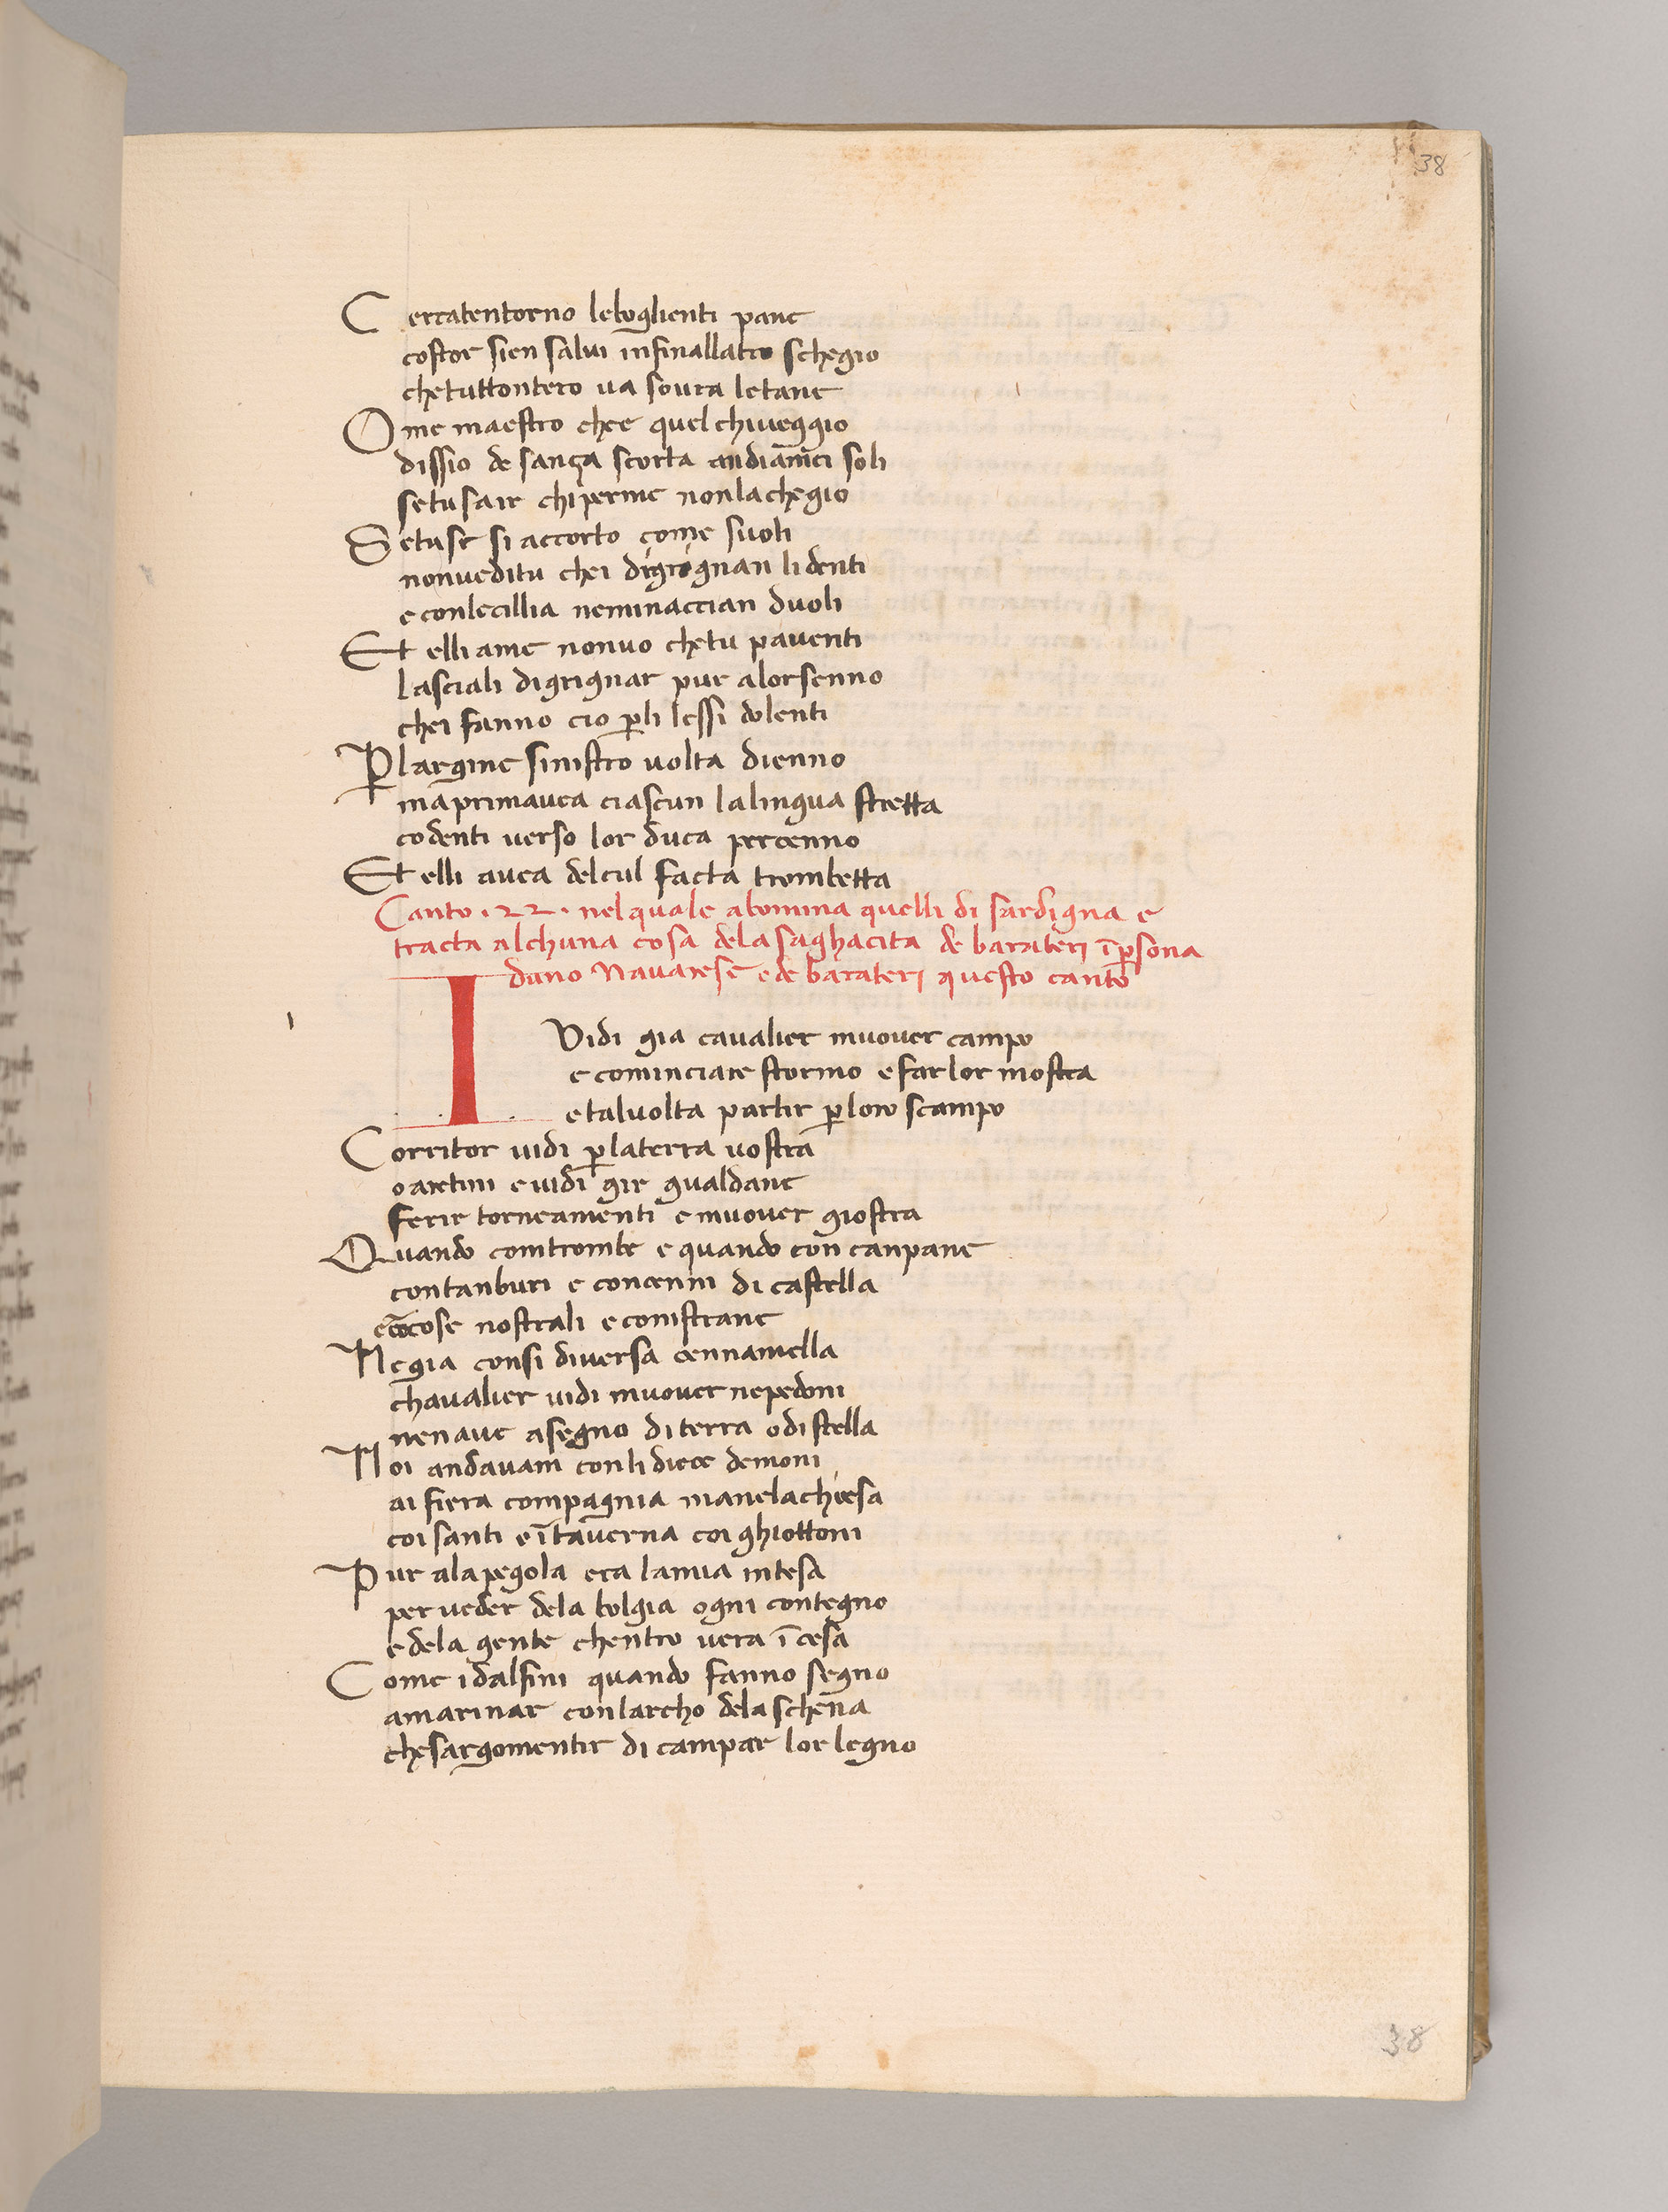 38
Cercatentorno leboglienti pane
costor sien salvi infinallatro schegio
chetuttontero va sovra letane
Ome maestro chee quel chiveggio
dissio de sança scorta andiamci soli
setusair chiperme nonlachegio
Setuse si accorto come suoli
nonveditu chei digrignan lidenti
econlecillia neminaccian duoli
Et elli ame nonvo chetu paventi
lasciali digrignar pur alorsenno
chei fanno cio p̱li lessi dolenti
P̱largine sinistro volta dienno
maprimavea ciascun lalingua stretta
codenti verso lor duca percenno
Et elli avea delcul facta trombetta
Canto .22. nelquale abomina quelli di sardigna e
tracta alchuna cosa delasaghacita de barateri īp̱sona
duno Navarese e de barateri questo canto
I Vidi gia cavalier muover campo
ecominciare stormo efarlor mostra
etalvolta partir p̱loro scampo
Corritor vidi p̱laterra vostra
oaretini evidi gir gualdane
ferir torneamenti e muover giostra
Quando comtrombe e quando con canpane
contanburi e concenni di castella
ecōcose nostrali e conistrane
Negia consi diversa cennamella
chavalier vidi muover nepedoni
nenave asegno di terra odistella
Noi andavam conli diece demoni
ai fiera compagnia manelachiesa
coisanti eītaverna coi ghiottoni
Pur alapegola era lamia intesa
per veder dela bolgia ogni contegno
edela gente chentro vera īcesa
Come idalfini quando fanno segno
amarinar conlarcho delaschena
chesargomentir di campar lor legno
38